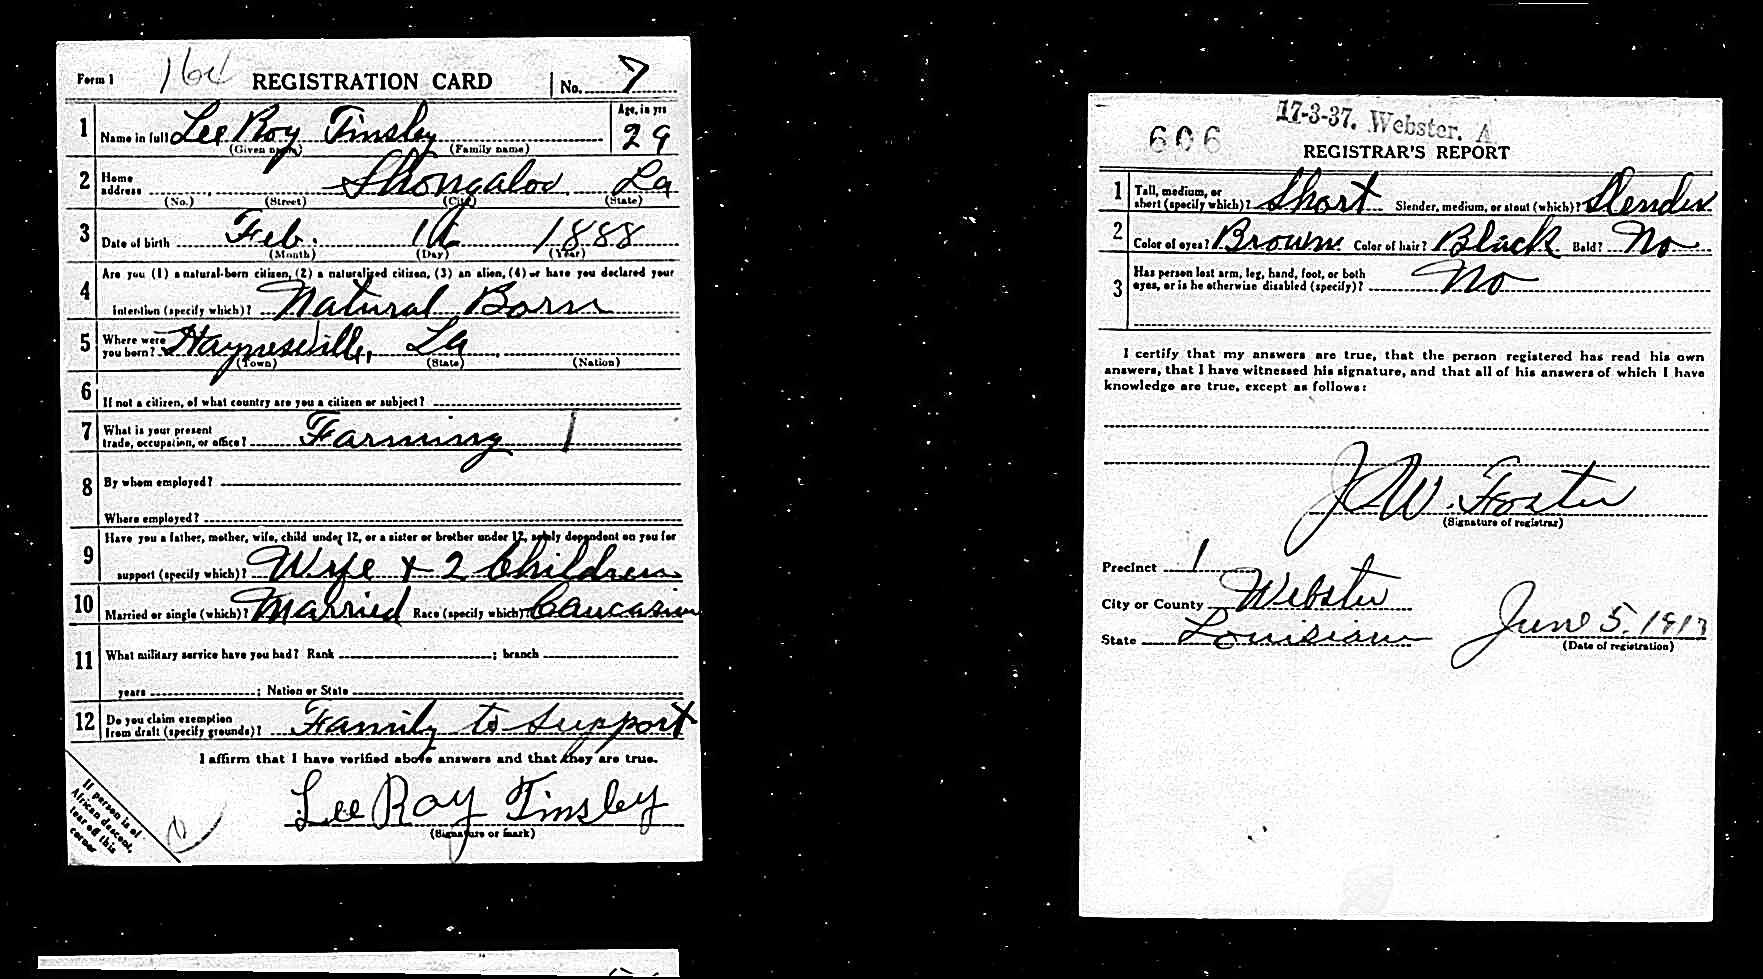 Form 1 164 REGISTRATION CARD No. 7
1 Name in full Lee Roy Tinsley Age, in yrs
(Given name) (Family name) 29
2 Home address Shongaloo La
(No.) (Street) (City) (State)
3 Date of birth Feb. 1888
(Month) (Day) (Year)
Are you (1) a natural-born citizen, (2) a naturalized citizen, (3) an alien, (4) or have you declared your
4 intention (specify which)? Natural Born
5 Where were you born? Haynesville, La
(Town) (State) (Nation)
6 If not a citizen, of what country are you a citizen or subject?
7 What is your present
trade, occupation, or office? Farming 1
8 By whom employed?
Where employed?
9 Have you a father, mother, wife, child under 12, or a sister or brother under 12, solely dependent on you for
support (specify which)? Wife + 2 Children
10 Married or single (which)? Married Race (specify which)? Caucasian
11 What military service have you had? Rank ; branch
years ; Nation or State
12 Do you claim exemption
from draft (specify grounds)? Family to Support
I affirm that I have verified above answers and that they are true.
Lee Roy Tinsley
(Signature or mark)
If person is of
African descent,
tear off this
corner
606 17-3-37. Webster. A
REGISTRAR'S REPORT
1 Tall, medium, or
short (specify which)? Short Slender, medium, or stout (which)? Slender
2 Color of eyes? Brown Color of hair? Black Bald? No
3 Has person lost arm, leg, hand, foot, or both
eyes, or is he otherwise disabled (specify)? No
I certify that my answers are true, that the person registered has read his own
answers, that I have witnessed his signature, and that all of his answers of which I have
knowledge are true, except as follows:
J W. Foster
(Signature of registrar)
Precinct 1
City or County Webster
State Louisiana June 5, 1917
(Date of registration)